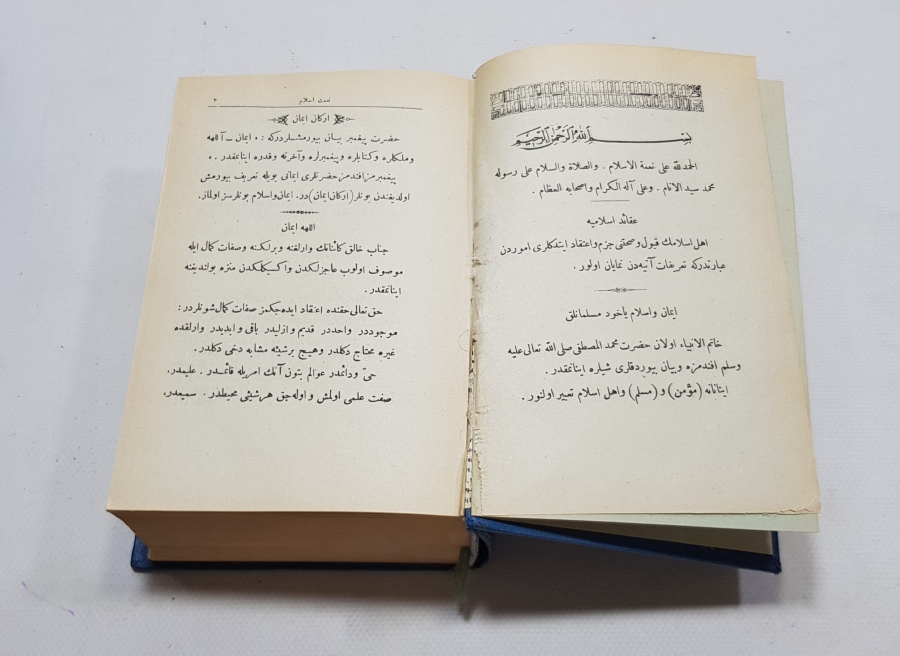 بسم الله الرحمن الرحيم
الحمد لله على نعمة الاسلام . والصلاة والسلام على رسوله
محمد سيد الانام . وعلى آله الكرام واصحابه العظام .
عقائد اسلاميه
اهل اسلامك قبول وصحتنى جزم واعتقاد ايتدكلرى اموردن
عبارتدركه تعريفات آتيه‌دن نمايان اولور .
ايمان واسلام ياخود مسلمانلق
خاتم الانبياء اولان حضرت محمد المصطفى صلى الله تعالى عليه
وسلم افندمزه وبيان بيوردقلرى شيلره اينانمقدر .
اينانانه (مؤمن) و (مسلم) واهل اسلام تعبير اولنور .
نعمت اسلام ٣
اركان ايمان
حضرت پيغمبر بيان بيورمشلردركه : « ايمان ــ آللهه
وملكلره وكتابلره وپيغمبرلره وآخرته وقدره اينانمقدر . »
پيغمبرمز افندمز حضرتلرى ايمانى بويله تعريف بيورمش
اولديغندن بونلر (اركان ايمان) در. ايمان واسلام بونلرسز اولماز.
اللهه ايمان
جناب خالق كائناتك وارلغنه وبرلكنه وصفات كمال ايله
موصوف اولوب عاجزلكدن واكسيكلكدن منزه بولنديغنه
اينانمقدر .
حق تعالى حقنده اعتقاد ايده‌جكمز صفات كمال شونلردر :
موجوددر واحددر قديم وازليدر باقى وابديدر وارلقده
غيره محتاج دكلدر وهيچ برشيئه مشابه دخى دكلدر .
حىّ ودائمدر عوالم بتون آنك امريله قائمدر . عليمدر،
صفت علمى اولمش و اوله‌جق هرشيئى محيطدر . سميعدر،